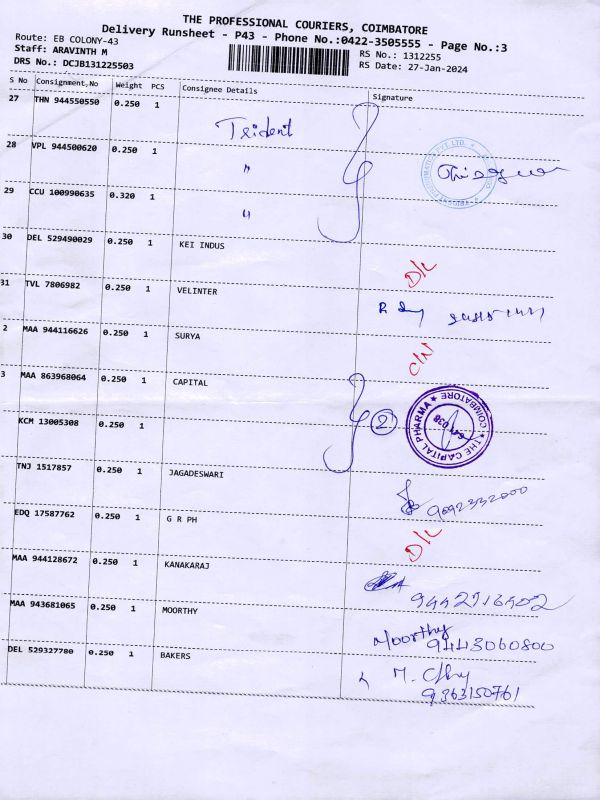 THE PROFESSIONAL COURIERS, COIMBATORE
Delivery Runsheet - P43 - Phone No.:0422-3505555 - Page No.:3
Route: EB COLONY-43
RS No.: 1312255
Staff: ARAVINTH M
RS Date: 27-Jan-2024
DRS No.: DCJB131225503
S No Consignment,No Weight PCS Consignee Details Signature
27 THN 944550550 0.250 1 Trident
28 VPL 944500620 0.250 1 "
29 CCU 100990635 0.320 1 "
30 DEL 529490029 0.250 1 KEI INDUS D/L
31 TVL 7806982 0.250 1 VELINTER
2 MAA 944116626 0.250 1 SURYA
3 MAA 863968064 0.250 1 CAPITAL 2
★ THE CAPITAL PHARMA ★ COIMBATORE 641 038
KCM 13005308 0.250 1
TNJ 1517857 0.250 1 JAGADESWARI 9092332000
EDQ 17587762 0.250 1 G R PH D/L
MAA 944128672 0.250 1 KANAKARAJ
MAA 943681065 0.250 1 MOORTHY Moorthy 9443060800
DEL 529327780 0.250 1 BAKERS 9363150761